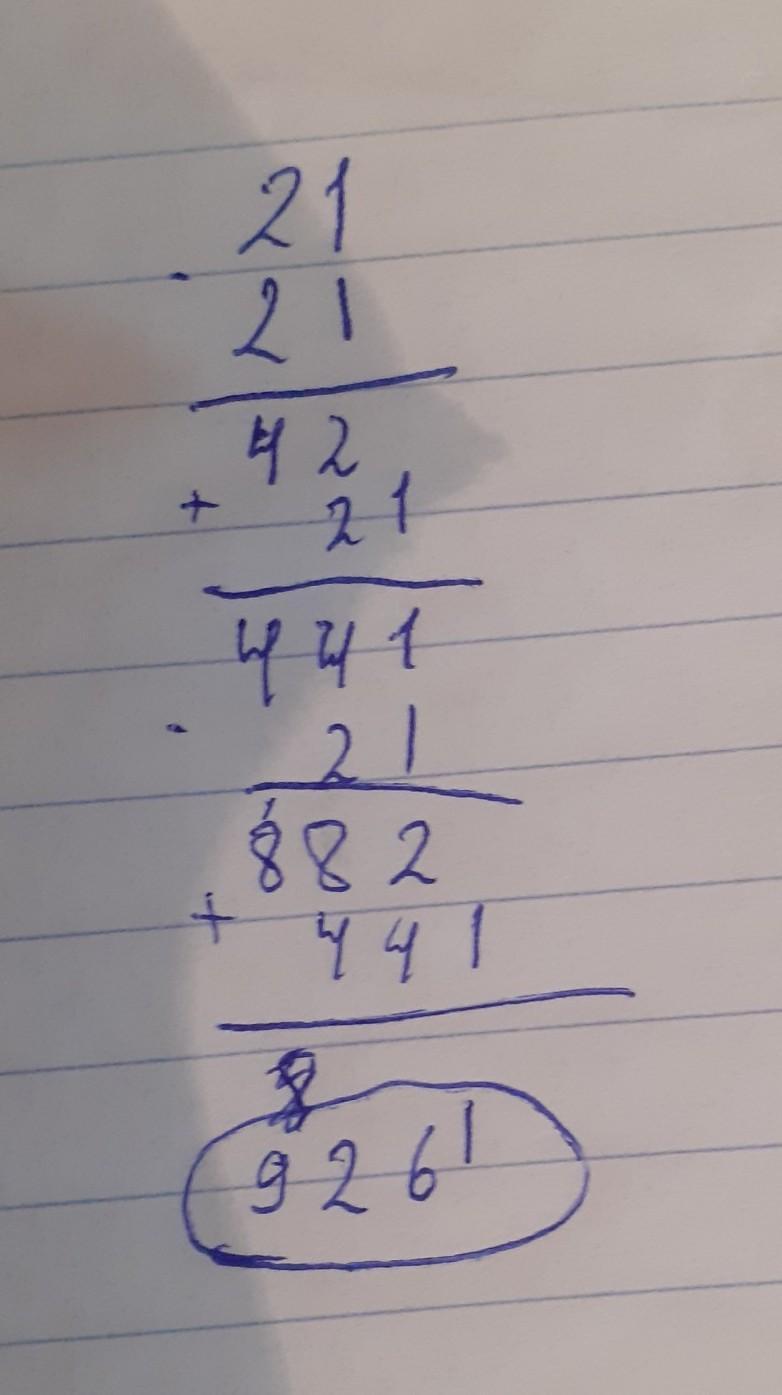 21
·
21
42
+
21
441
·
21
882
+
441
9261